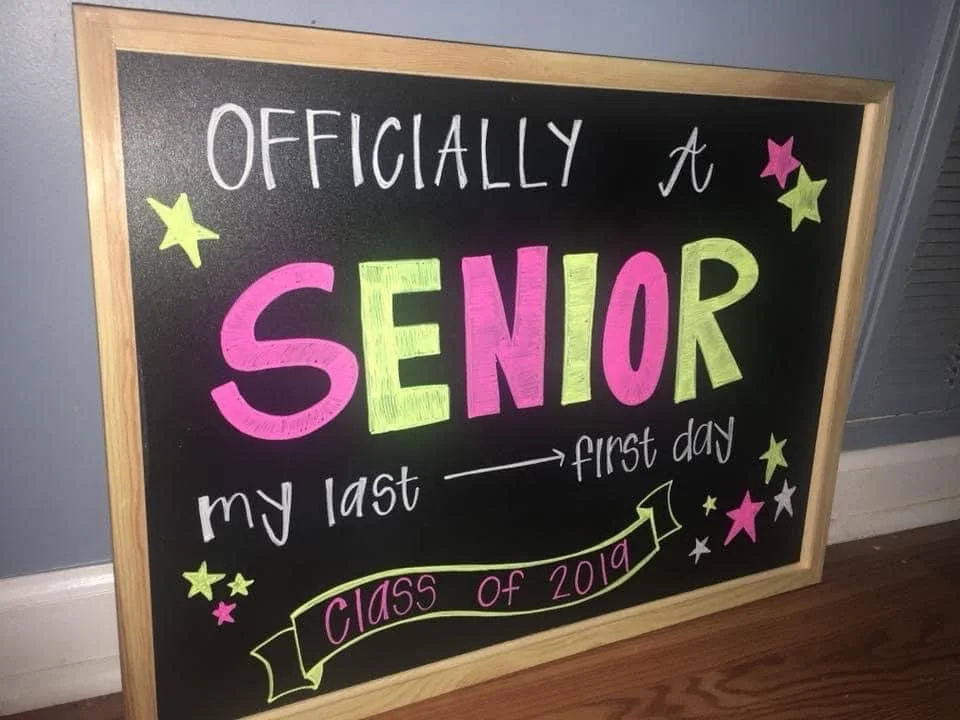 OFFICIALLY A
SENIOR
my last → first day
Class of 2019